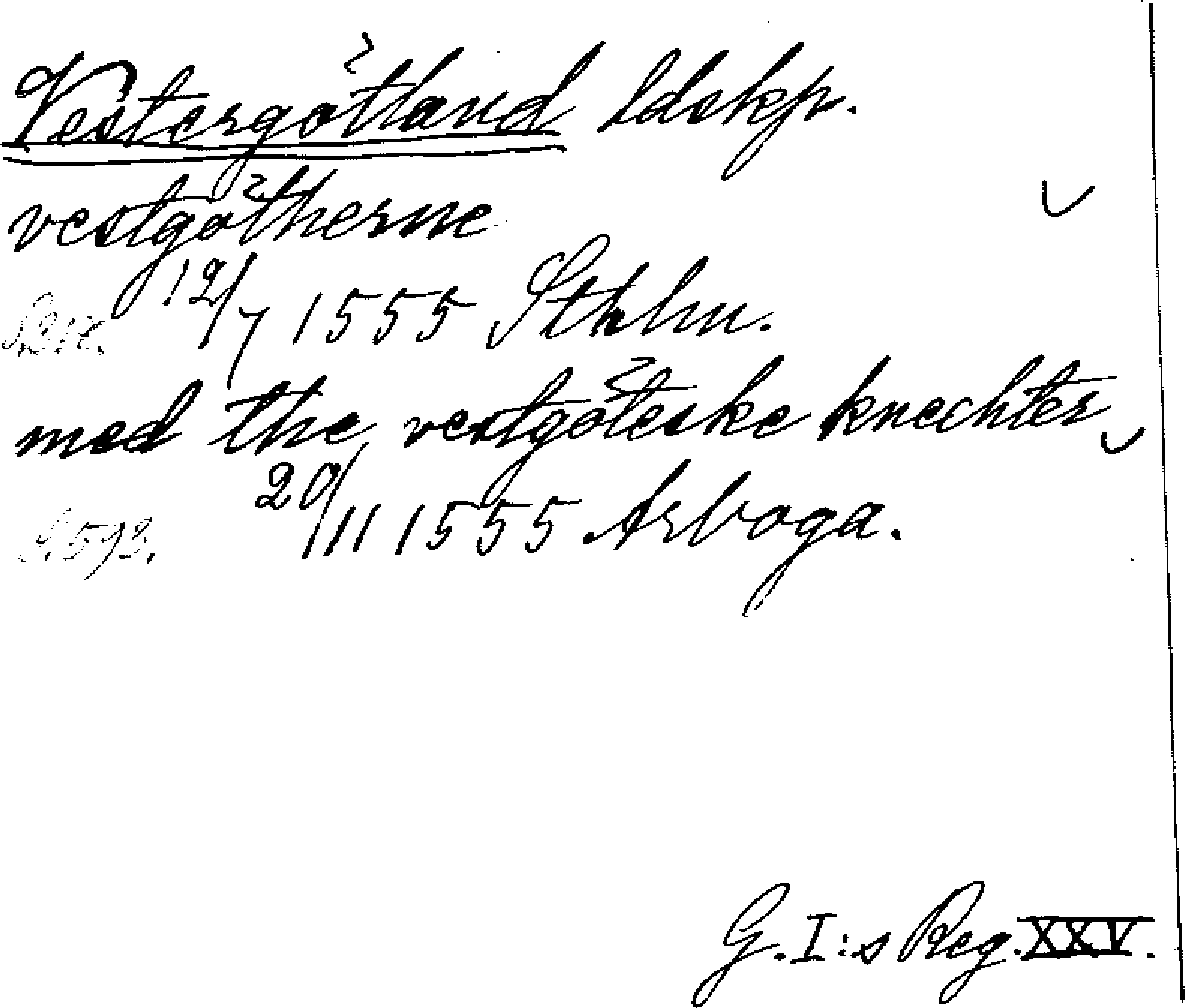 Vestergötland ldskp.
vestgötherne
12/7 1555 Sthlm.
med the vestgöteske knechter
S. 593. 20/11 1555 Arboga.
G. I:s Reg. XXV.